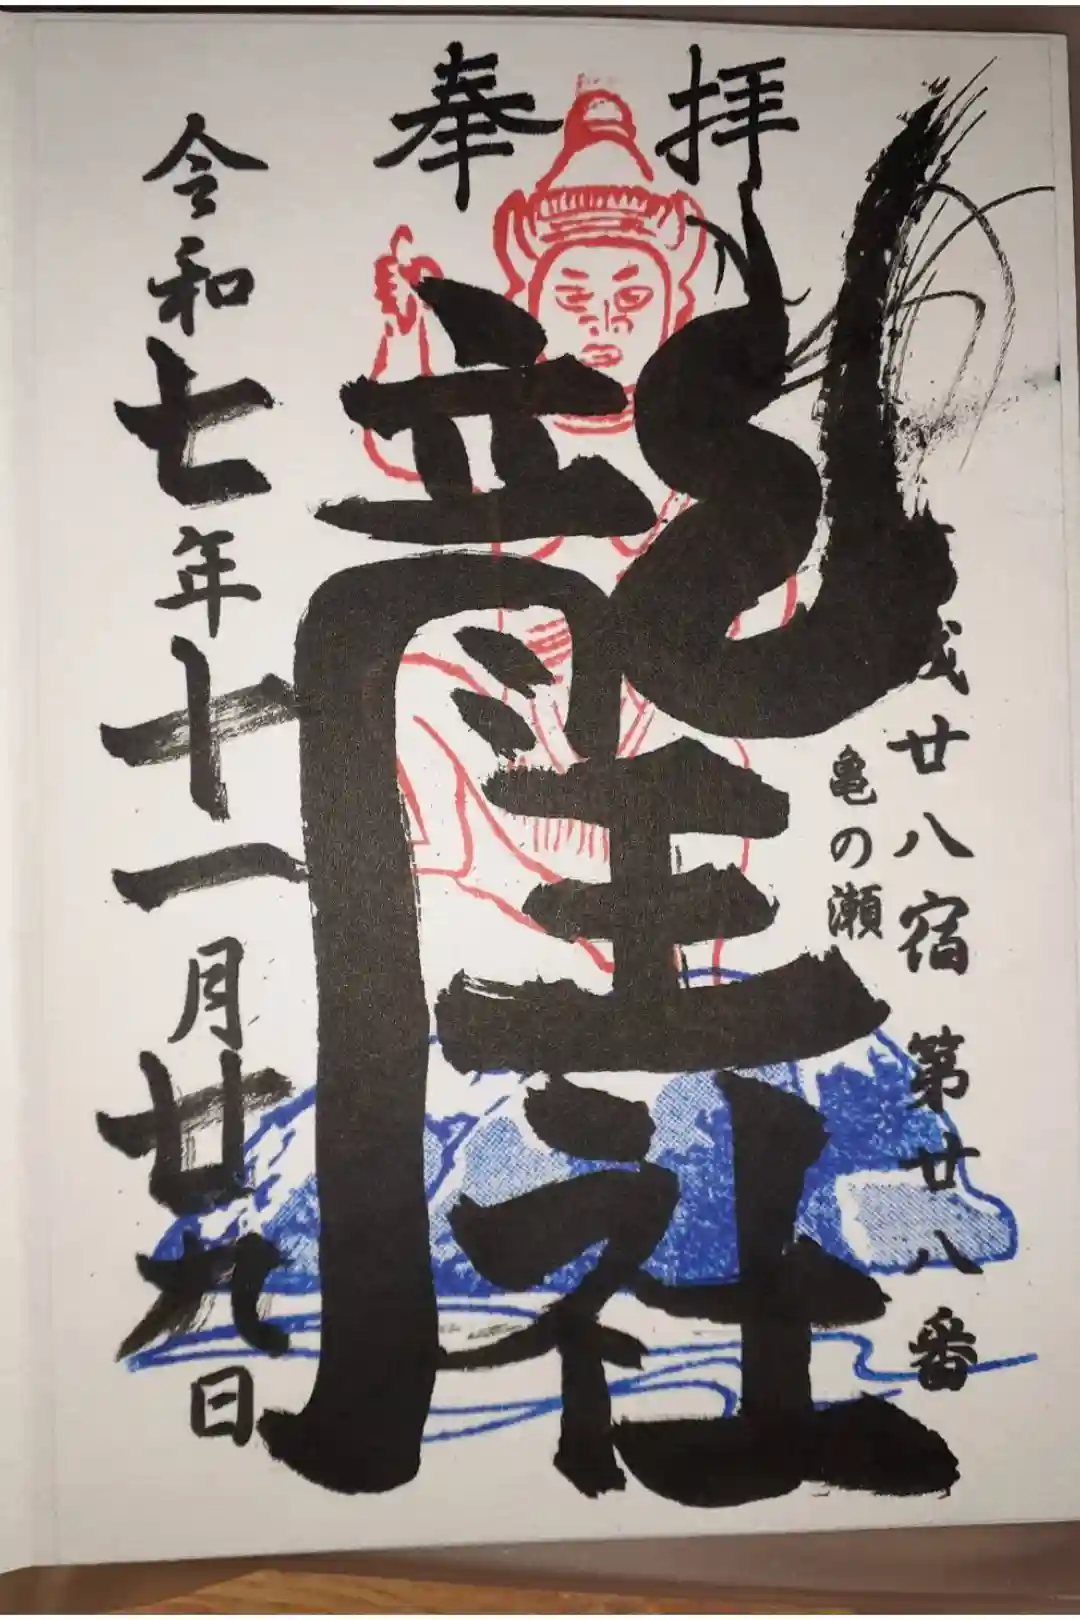 奉拝
廿八宿 第廿八番
亀の瀬
龍王社
令和七年十一月廿九日